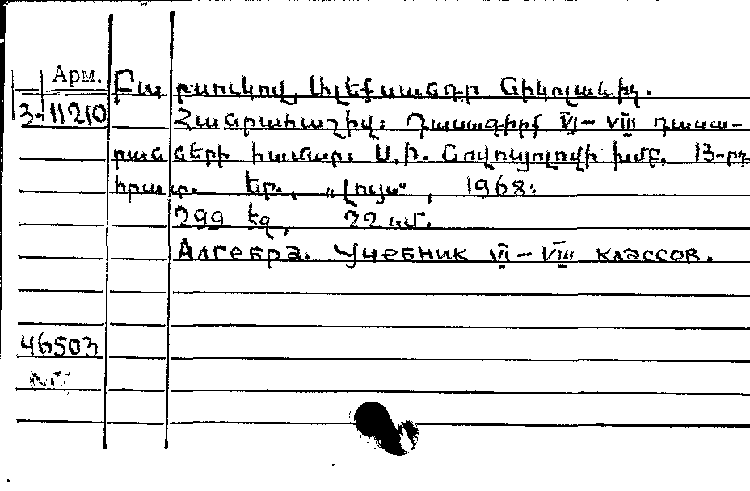 Арм.
3-11210
Բարսուկով, Ալեքսանդր Նիկոլաևիչ.
Հանրահաշիվ: Դասագիրք VI – VIII դասա-
րանների համար: Ս.Ի. Նովոսյոլովի խմբ. 13-րդ
հրատ. Եր., „Լույս“, 1968:
299 էջ, 22 սմ.
Алгебра. Учебник VI – VIII классов.
46503